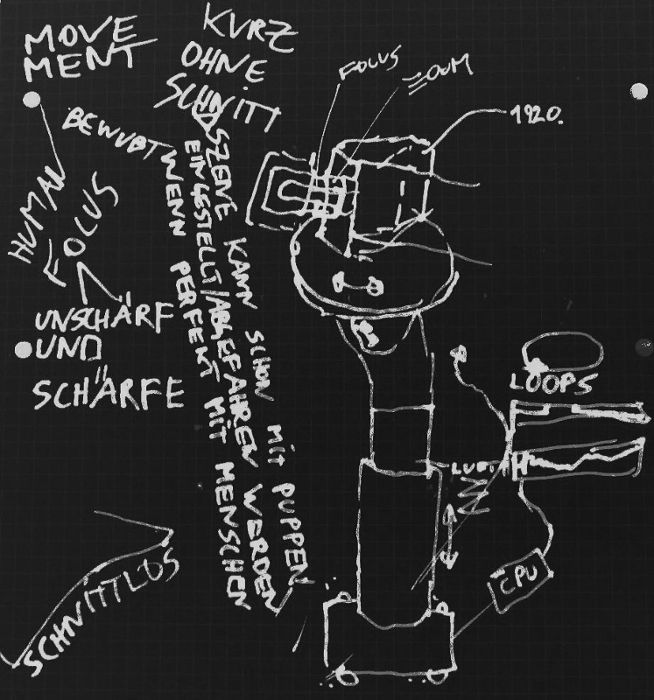 MOVE
MENT
KURZ
OHNE
SCHNITT
FOCUS
ZOOM
1920.
BEWUßT
HUMAN
FOCUS
UNSCHÄRF
UND
SCHÄRFE
SZENE KANN SCHON MIT PUPPEN
EINGESTELLT/ABGEFAHREN WERDEN
WENN PERFEKT MIT MENSCHEN
LOOPS
LUFT
CPU
SCHNITTLOS